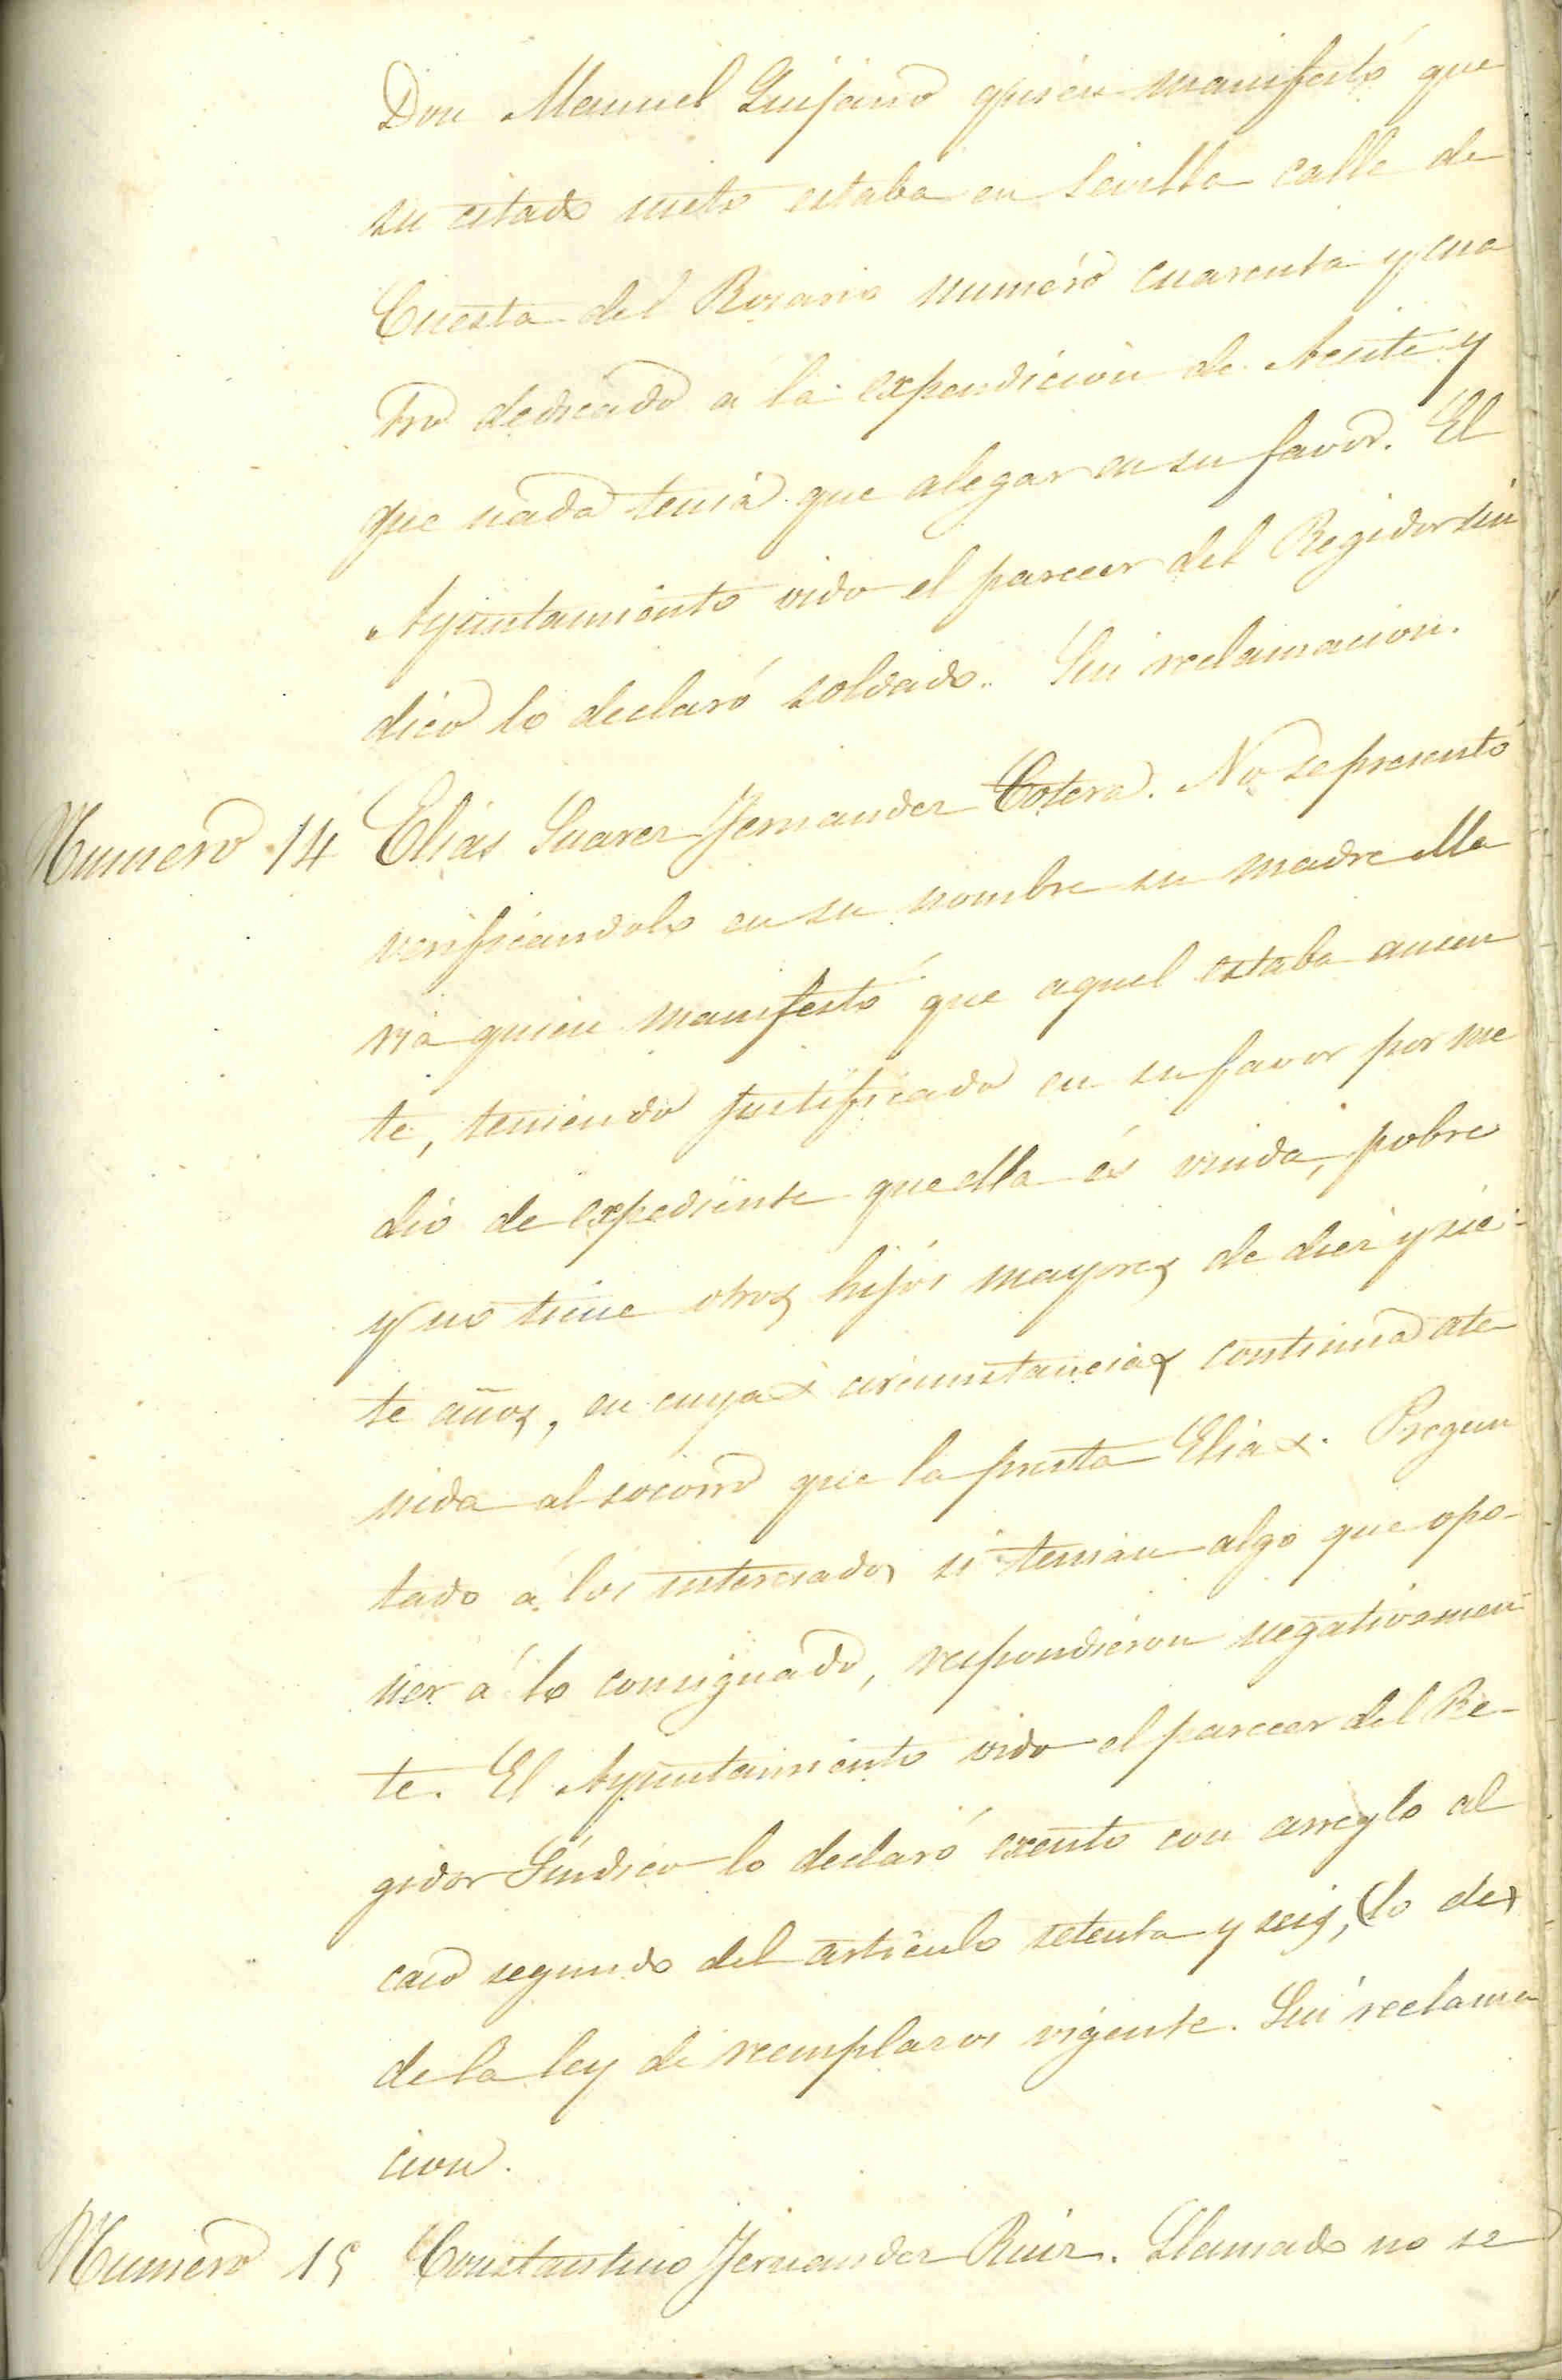 Don Manuel Quijano quien manifestó que
su citado nieto estaba en Sevilla calle de
Cuesta del Rosario numero cuarenta y cua
tro dedicado a la expendicion de Aceite y
que nada tenia que alegar en su favor. El
Ayuntamiento oido el parecer del Regidor Sin
dico lo declaró soldado. Sin reclamacion.
Numero 14 Elias Suarez Fernandez Cotera. No se presentó
verificandolo en su nombre su madre Ma
ria quien manifestó que aquel estaba ausen
te, teniendo justificado en su favor por me
dio de expediente que ella és viuda, pobre
y no tiene otros hijos mayores de diez y sie-
te años, en cuyas circunstancias continua ate-
nida al socorro que la presta Elias. Pregun
tado á los interesados si tenian algo que opo-
ner á lo consignado, respondieron negativamen-
te. El Ayuntamiento oido el parecer del Re-
gidor Síndico lo declaró exento con arreglo al
caso segundo del artículo setenta y seis, (lo de)
de la ley de reemplazos vigente. Sin reclama
cion.
Numero 15 Constantino Fernandez Ruiz. Llamado no se